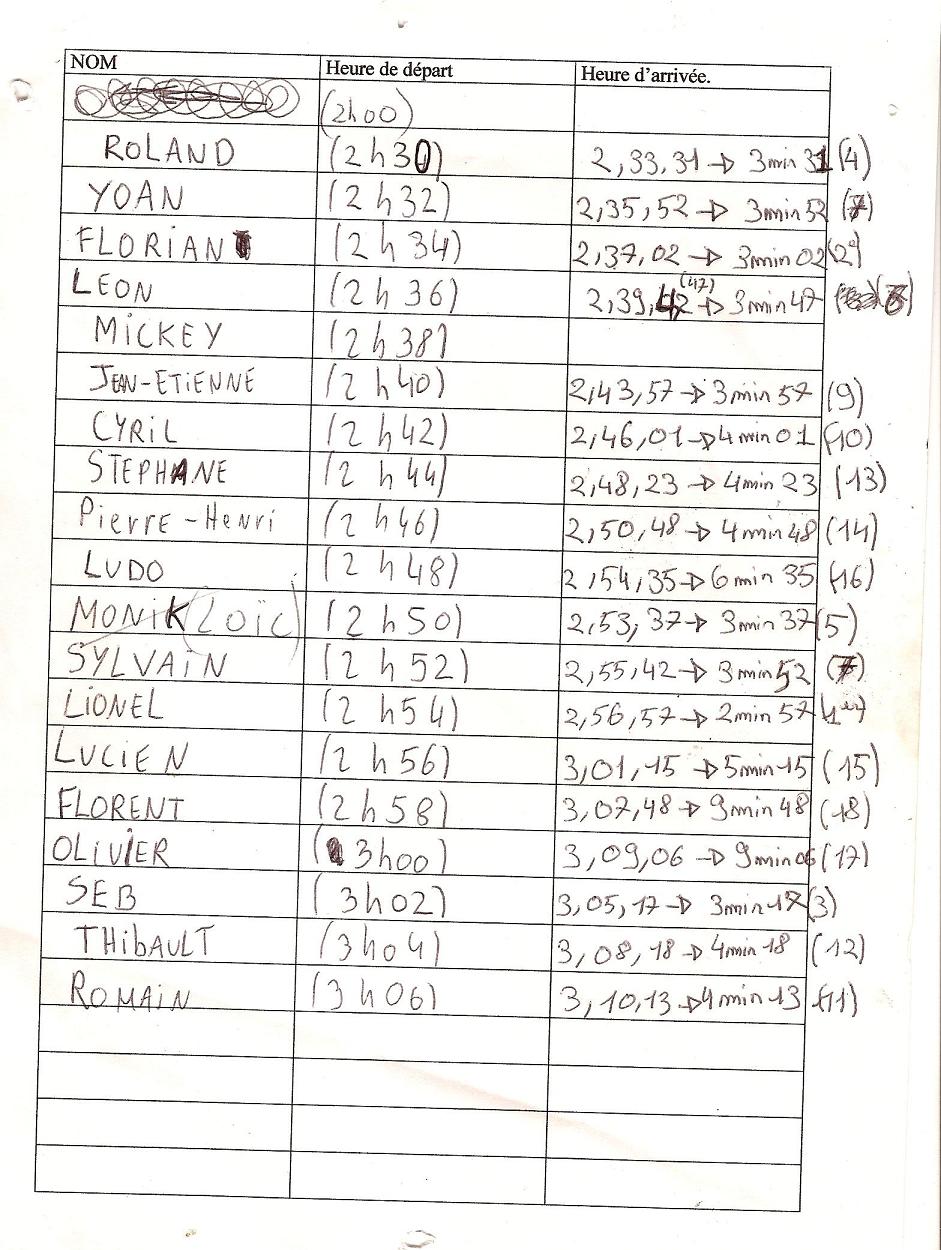 NOM Heure de départ Heure d'arrivée.
(2h00)
ROLAND (2h30) 2,33,31 → 3min 31 (4)
YOAN (2h32) 2,35,52 → 3min 52 (7)
FLORIAN (2h34) 2,37,02 → 3min 02 (2e)
LEON (2h36) 2,39,42 (47) → 3min 47 (6)
MICKEY (2h38)
JEAN-ETIENNE (2h40) 2,43,57 → 3min 57 (9)
CYRIL (2h42) 2,46,01 → 4min 01 (10)
STEPHANE (2h44) 2,48,23 → 4min 23 (13)
Pierre-Henri (2h46) 2,50,48 → 4min 48 (14)
LUDO (2h48) 2,54,35 → 6min 35 (16)
MONIK (LOÏC) (2h50) 2,53,37 → 3min 37 (5)
SYLVAIN (2h52) 2,55,42 → 3min 52 (7)
LIONEL (2h54) 2,56,57 → 2min 57 (1er)
LUCIEN (2h56) 3,01,15 → 5min 15 (15)
FLORENT (2h58) 3,07,48 → 9min 48 (18)
OLIVIER (3h00) 3,09,06 → 9min 06 (17)
SEB (3h02) 3,05,17 → 3min 17 (3)
THIBAULT (3h04) 3,08,18 → 4min 18 (12)
ROMAIN (3h06) 3,10,13 → 4min 13 (11)